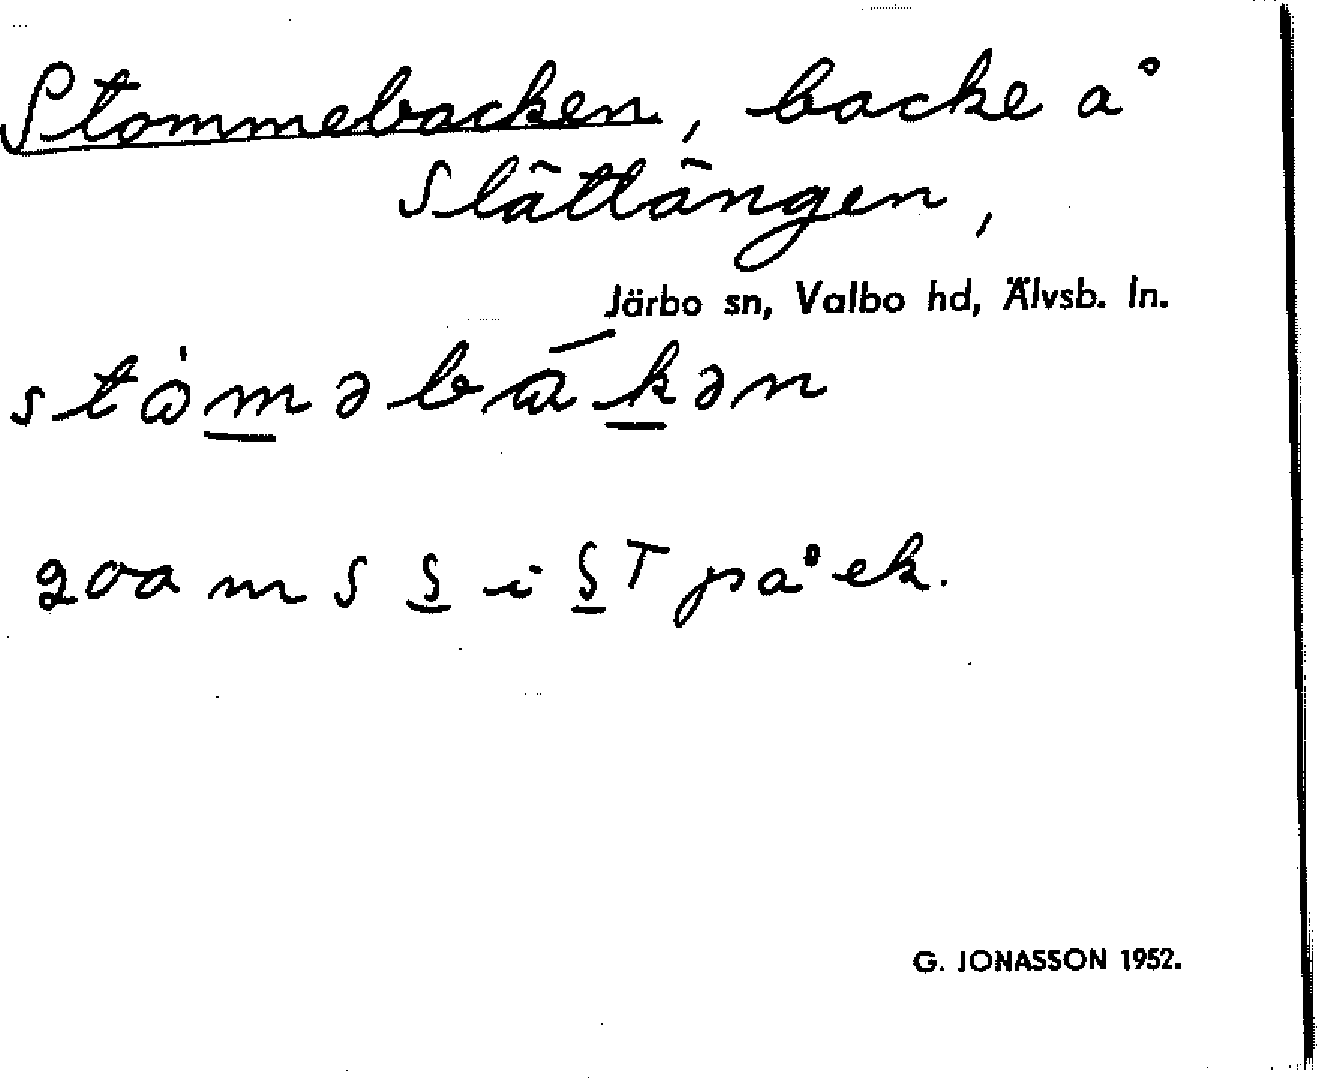 Stommebacken, backe å
Slättängen,
Järbo sn, Valbo hd, Älvsb. ln.
stòməbákən
200 m S S i ST på ek.
G. JONASSON 1952.